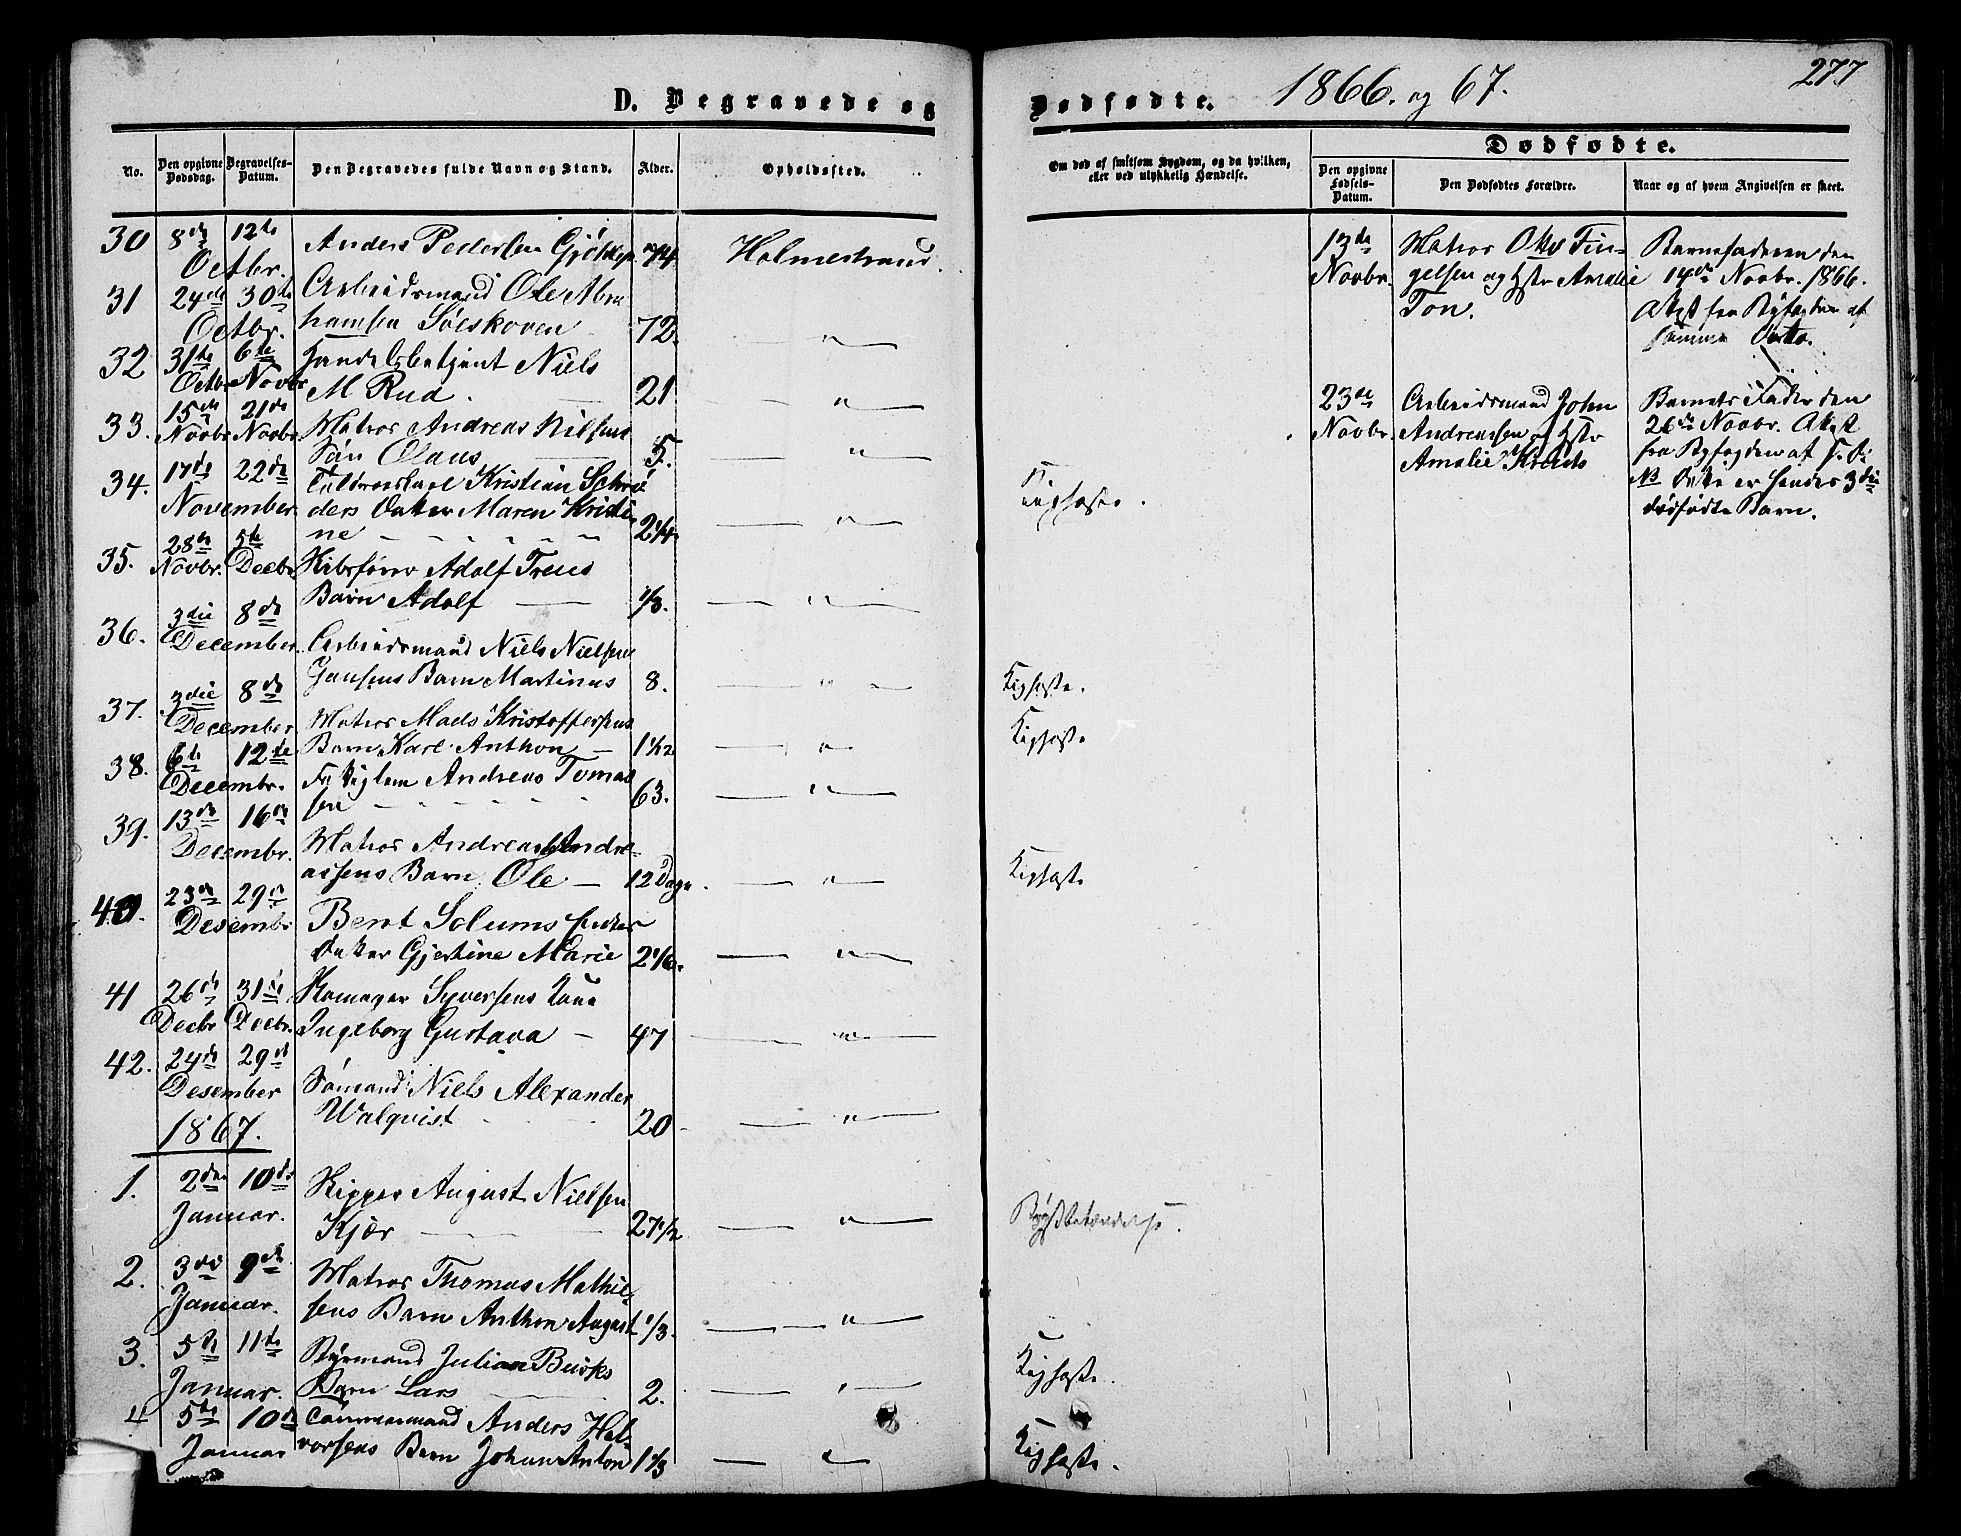 D. Begravede og Dødfødte. 1866. og 67. 277
No. Den opgivne Dødsdag. Begravelses-Datum. Den Begravedes fulde Navn og Stand. Alder. Opholdssted.
Om død af smitsom Sygdom, og da hvilken, eller ved ulykkelig Hændelse.
Dødfødte.
Den opgivne Fødsels-Datum. Den Dødfødtes Forældre. Naar og af hvem Angivelsen er skeet.
30 8de 12te Anders Pedersen 74. Holmestrand.
Octbr.
31 24de 30te Arbeidsmand Ole Abra
Octbr. hamsen Solskoven 72. — " —
32 31te 6te Handelsbetjent Niels
Octbr Novbr M Rud. 21 — " —
33. 15de 21de Matros Andreas Nilsens
Novbr Novbr Søn Olaus 5. — " —
34. 17de 22de Kristian
November. ders Datter Maren Kristi
ne 2 1/4 — " — Kighoste.
35. 28de 5te Adolf
Novbr. Decbr. Barn Adolf 1/3. — " —
36. 3die 8de Arbeidsmand Niels Nielsen
December. Jansens Barn Martinus 8. — " — Kighoste.
37. 3die 8de Matros Mads Kristoffersens
December Barn Karl Anthon 1 1/12 — " — Kighoste
38. 6te 12te Fattiglem Andreas Tomas
Decembr. sen 63. — " —
39. 13de 16de Matros Andreas Andre-
Decembr. assens Barn Ole 12 Dage. — " — Kighoste
40. 23de 29de Bent Solums
Desembr Datter Gjertine Marie 2 1/6. — " —
41 26de 31te Syversens Kone
Decbr Decbr. Ingeborg Gustava 47 — " —
42. 24de 29de Sømand Niels Alexander
Desember Walqvist 20 — " —
1867.
1. 2den 10de Skipper August Nielsen
Januar. Kjær 27 1/2 — " — Brystbetændelse.
2. 3die 9de Matros Thomas Mathie-
Januar. sens Barn Anthon August 1/3. — " —
3. 5te 11te Styrmand Julian Busks
Januar. Barn Lars 2. — " — Kighoste.
4 5te 10de Tømmermand Anders Hal-
Januar vorsens Barn Johan Anton 1 1/3 — " — Kighoste.
13de Matros
Novbr. gelsen og Hstr Amalie
Ton.
Barnefaderen den
14de Novbr. 1866.
Attest fra Byfogden af
samme Dato.
23de Arbeidsmand John
Novbr. Andreassen og Hstr
Amalie
Barnets Fader den
26de Novbr. Attest
fra Byfogden af
NB Dette er hendes 3die
dødfødte Barn.